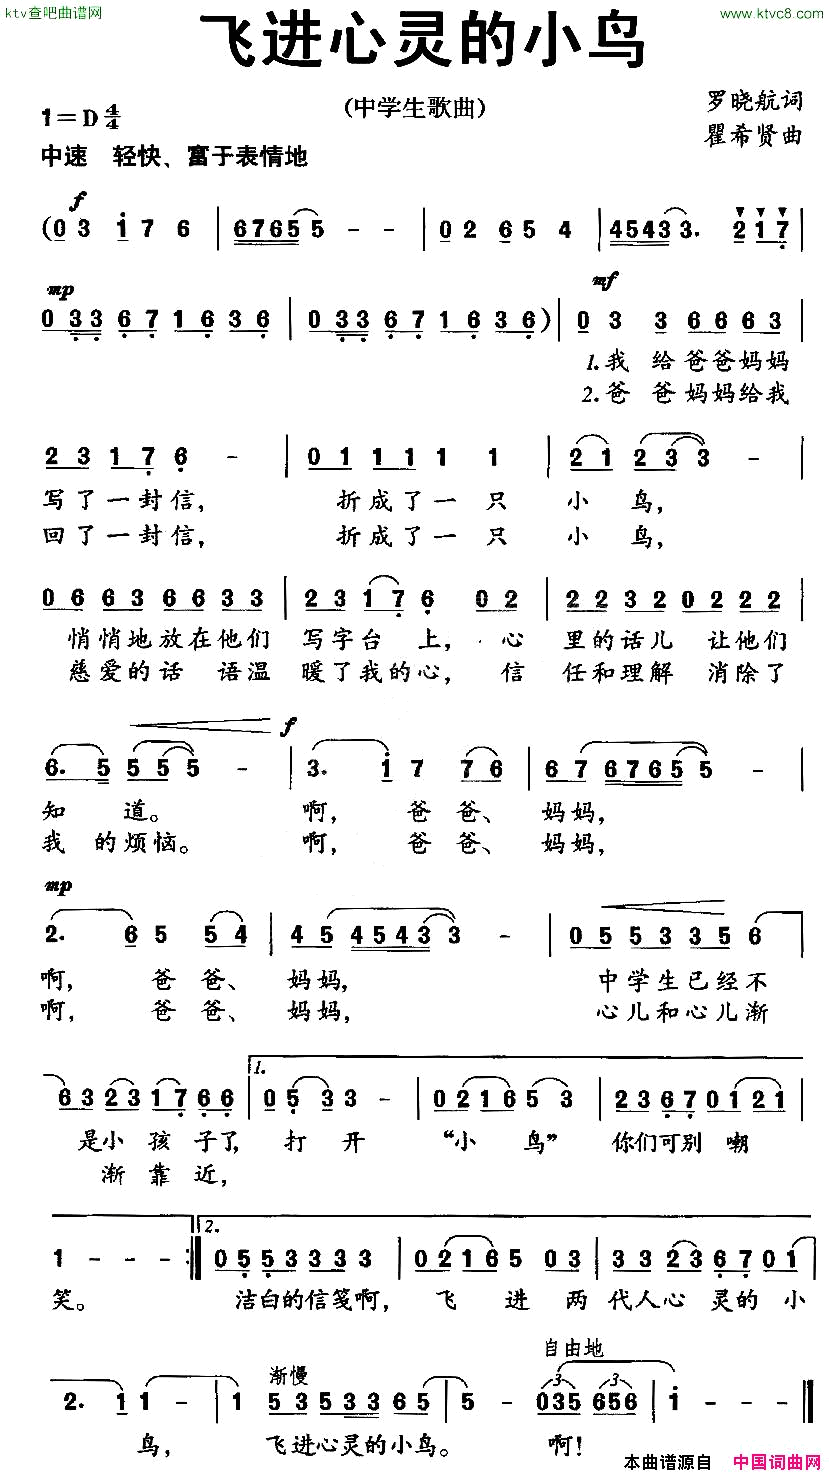 ktv查吧曲谱网
www.ktvc8.com
飞进心灵的小鸟
(中学生歌曲)
罗晓航词
瞿希贤曲
1=D 4/4
中速 轻快、富于表情地
f
(0 3 1 7 6 | 67655 - - | 0 2 6 5 4 | 45433. 217
mp mf
0 33 67 1636 | 0 33 67 1636) | 0 3 3 6663
1.我 给爸爸妈妈
2.爸 爸妈妈给我
2317 6 - | 0111 1 1 | 21 233 -
写了一封信, 折成了一只 小 鸟,
回了一封信, 折成了一只 小 鸟,
0663 6633 | 2317 6 02 | 2232 0222
悄悄地放在他们 写字台 上, 心 里的话儿 让他们
慈爱的话 语温 暖了我的心, 信 任和理解 消除了
f
6. 5 555 - | 3. 1 7 76 | 67 67655 -
知 道。 啊, 爸 爸、 妈妈,
我 的烦恼。 啊, 爸 爸、 妈妈,
mp
2. 6 5 54 | 45 45433 - | 055335 6
啊, 爸 爸、 妈妈, 中学生已经不
啊, 爸 爸、 妈妈, 心儿和心儿渐
1.
6323 1766 | 053 3 - | 02165 3 | 2367 0121
是小 孩 子了, 打 开 “小 鸟” 你们可别 嘲
渐 靠 近,
2.
1 - - - :| 055 3333 | 02165 03 | 3323 6701
笑。 洁白的信笺啊, 飞 进 两 代人心 灵的 小
渐慢 自由地
2. 1 1 - | 1 53533 65 | 5 - 035 656 | 1 - - - |
3 3
鸟, 飞进心灵的小鸟。 啊!
本曲谱源自 中国词曲网